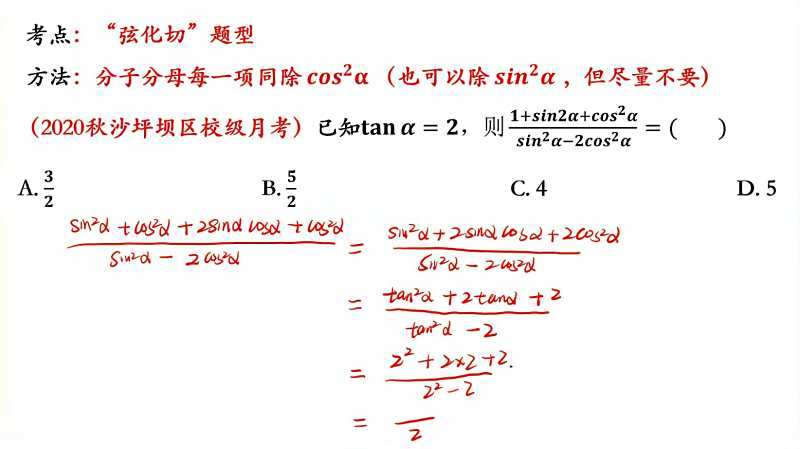 考点：“弦化切”题型
方法：分子分母每一项同除 cos²α（也可以除 sin²α，但尽量不要）
（2020秋沙坪坝区校级月考）已知tan α = 2，则 (1+sin2α+cos²α)/(sin²α−2cos²α) = (    )
A. 3/2    B. 5/2    C. 4    D. 5
(sin²α + cos²α + 2sinα cosα + cos²α)/(sin²α − 2cos²α) = (sin²α + 2sinα cosα + 2cos²α)/(sin²α − 2cos²α)
= (tan²α + 2tanα + 2)/(tan²α − 2)
= (2² + 2×2 + 2.)/(2² − 2)
= /2